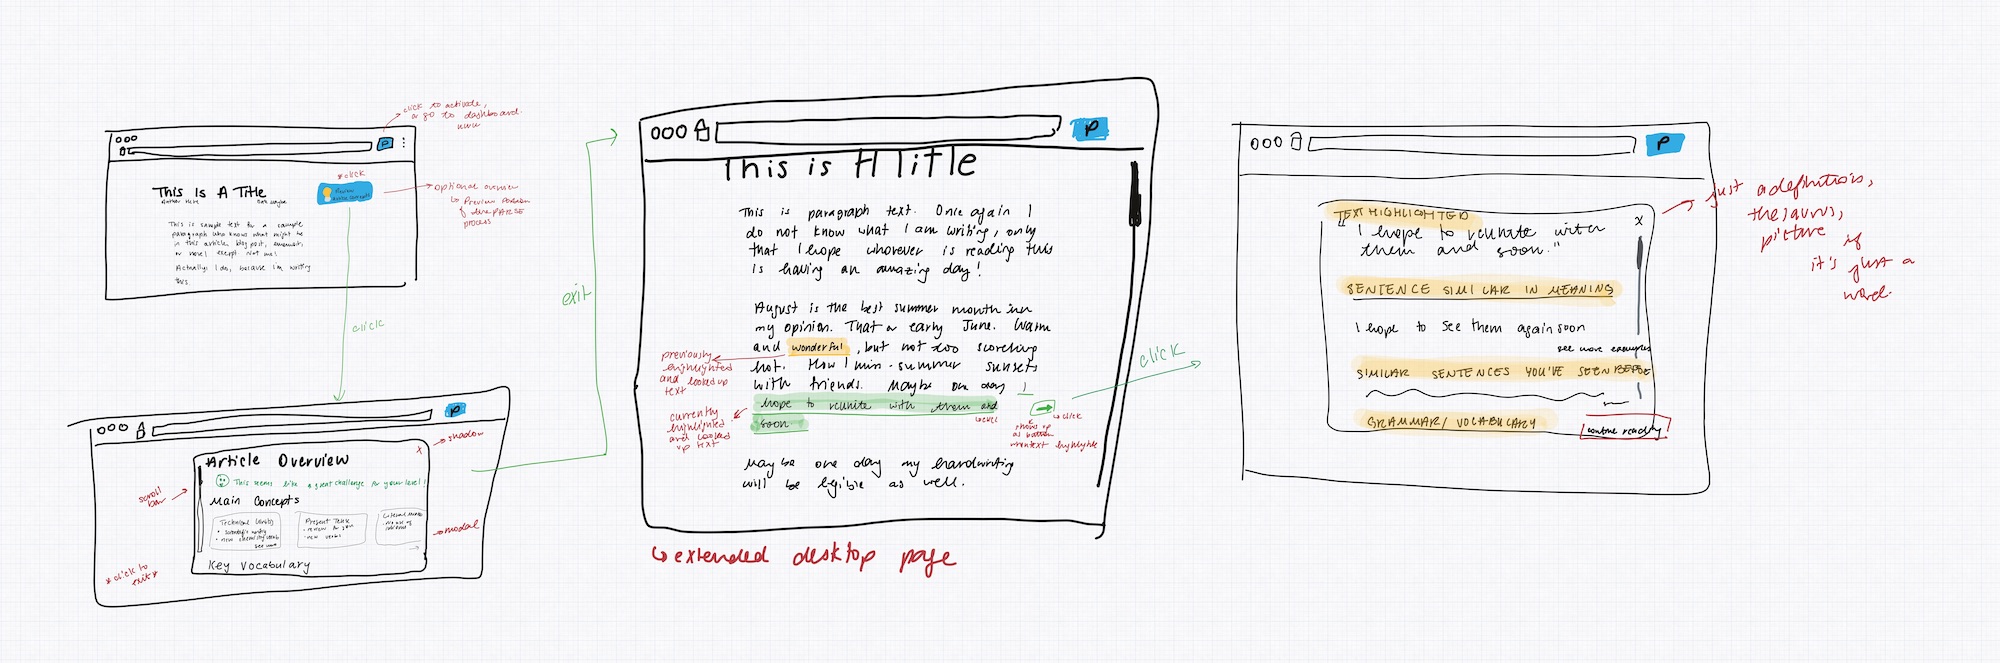 click to activate,
& go to dashboard
P
*click
This Is A Title
Author Here
Preview
optional overview
↳ Preview Portion
of the PARSE
process
This is sample text for a sample
paragraph who knows what might be
in this article, blog post,
or novel except not me!
Actually I do, because I'm writing
this.
click
P
Article Overview
x
shadow
This seems like a great challenge for your level!
scroll
bar
Main Concepts
Technical Writing
• scientific writing
• new chemistry vocab
see more
Present Tense
• review for you
• new verbs
modal
*click to
exit*
Key Vocabulary
exit
P
This is A Title
This is paragraph text. Once again I
do not know what I am writing, only
that I hope whoever is reading this
is having an amazing day!
August is the best summer month in
my opinion. That or early June. Warm
and wonderful, but not too scorching
hot. How I miss summer sunsets
with friends. Maybe one day I
hope to reunite with them and
soon.
previously
highlighted
and looked up
text
currently
highlighted
and looked
up text
click
shows up
as button
when text highlighted
click
Maybe one day my handwriting
will be legible as well.
↳ extended desktop page
P
TEXT HIGHLIGHTED
x
"I hope to reunite with
them and soon."
SENTENCE SIMILAR IN MEANING
I hope to see them again soon
see more examples
SIMILAR SENTENCES YOU'VE SEEN BEFORE
GRAMMAR/ VOCABULARY
continue reading
just a definition,
thesaurus,
picture if
it's just a
word.